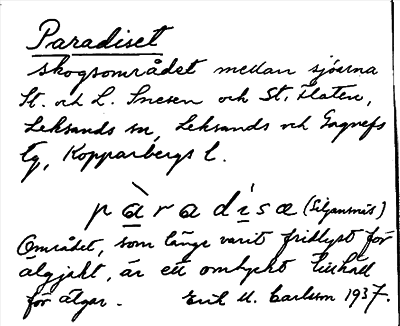 Paradiset
skogsområdet mellan sjöarna
St. och L. Snesen och St. Flaten,
Leksands sn, Leksands och Gagnefs
tg, Kopparbergs l.
pàradìsæ (Siljansnäs)
Området, som länge varit fridlyst för
älgjakt, är ett omtyckt tillhåll
för älgar. Erik M. Carlsson 1937.